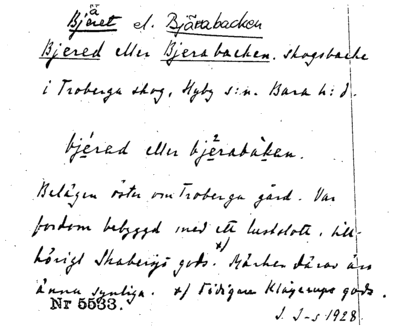 Bjäret el. Bjärabacken
Bjered eller Bjerabacken. skogsbacke
i Troberga skog, Hyby s:n. Bara h:d.
bjérad eller bjèrabàken.
Belägen öster om Troberga gård. Var
fordom bebyggd med ett lustslott, till-
hörigt Skabersjö gods. x) Märken därav äro
ännu synliga. x) Tidigare Klågerups gods.
Nr 5533.
J. I-s 1928.